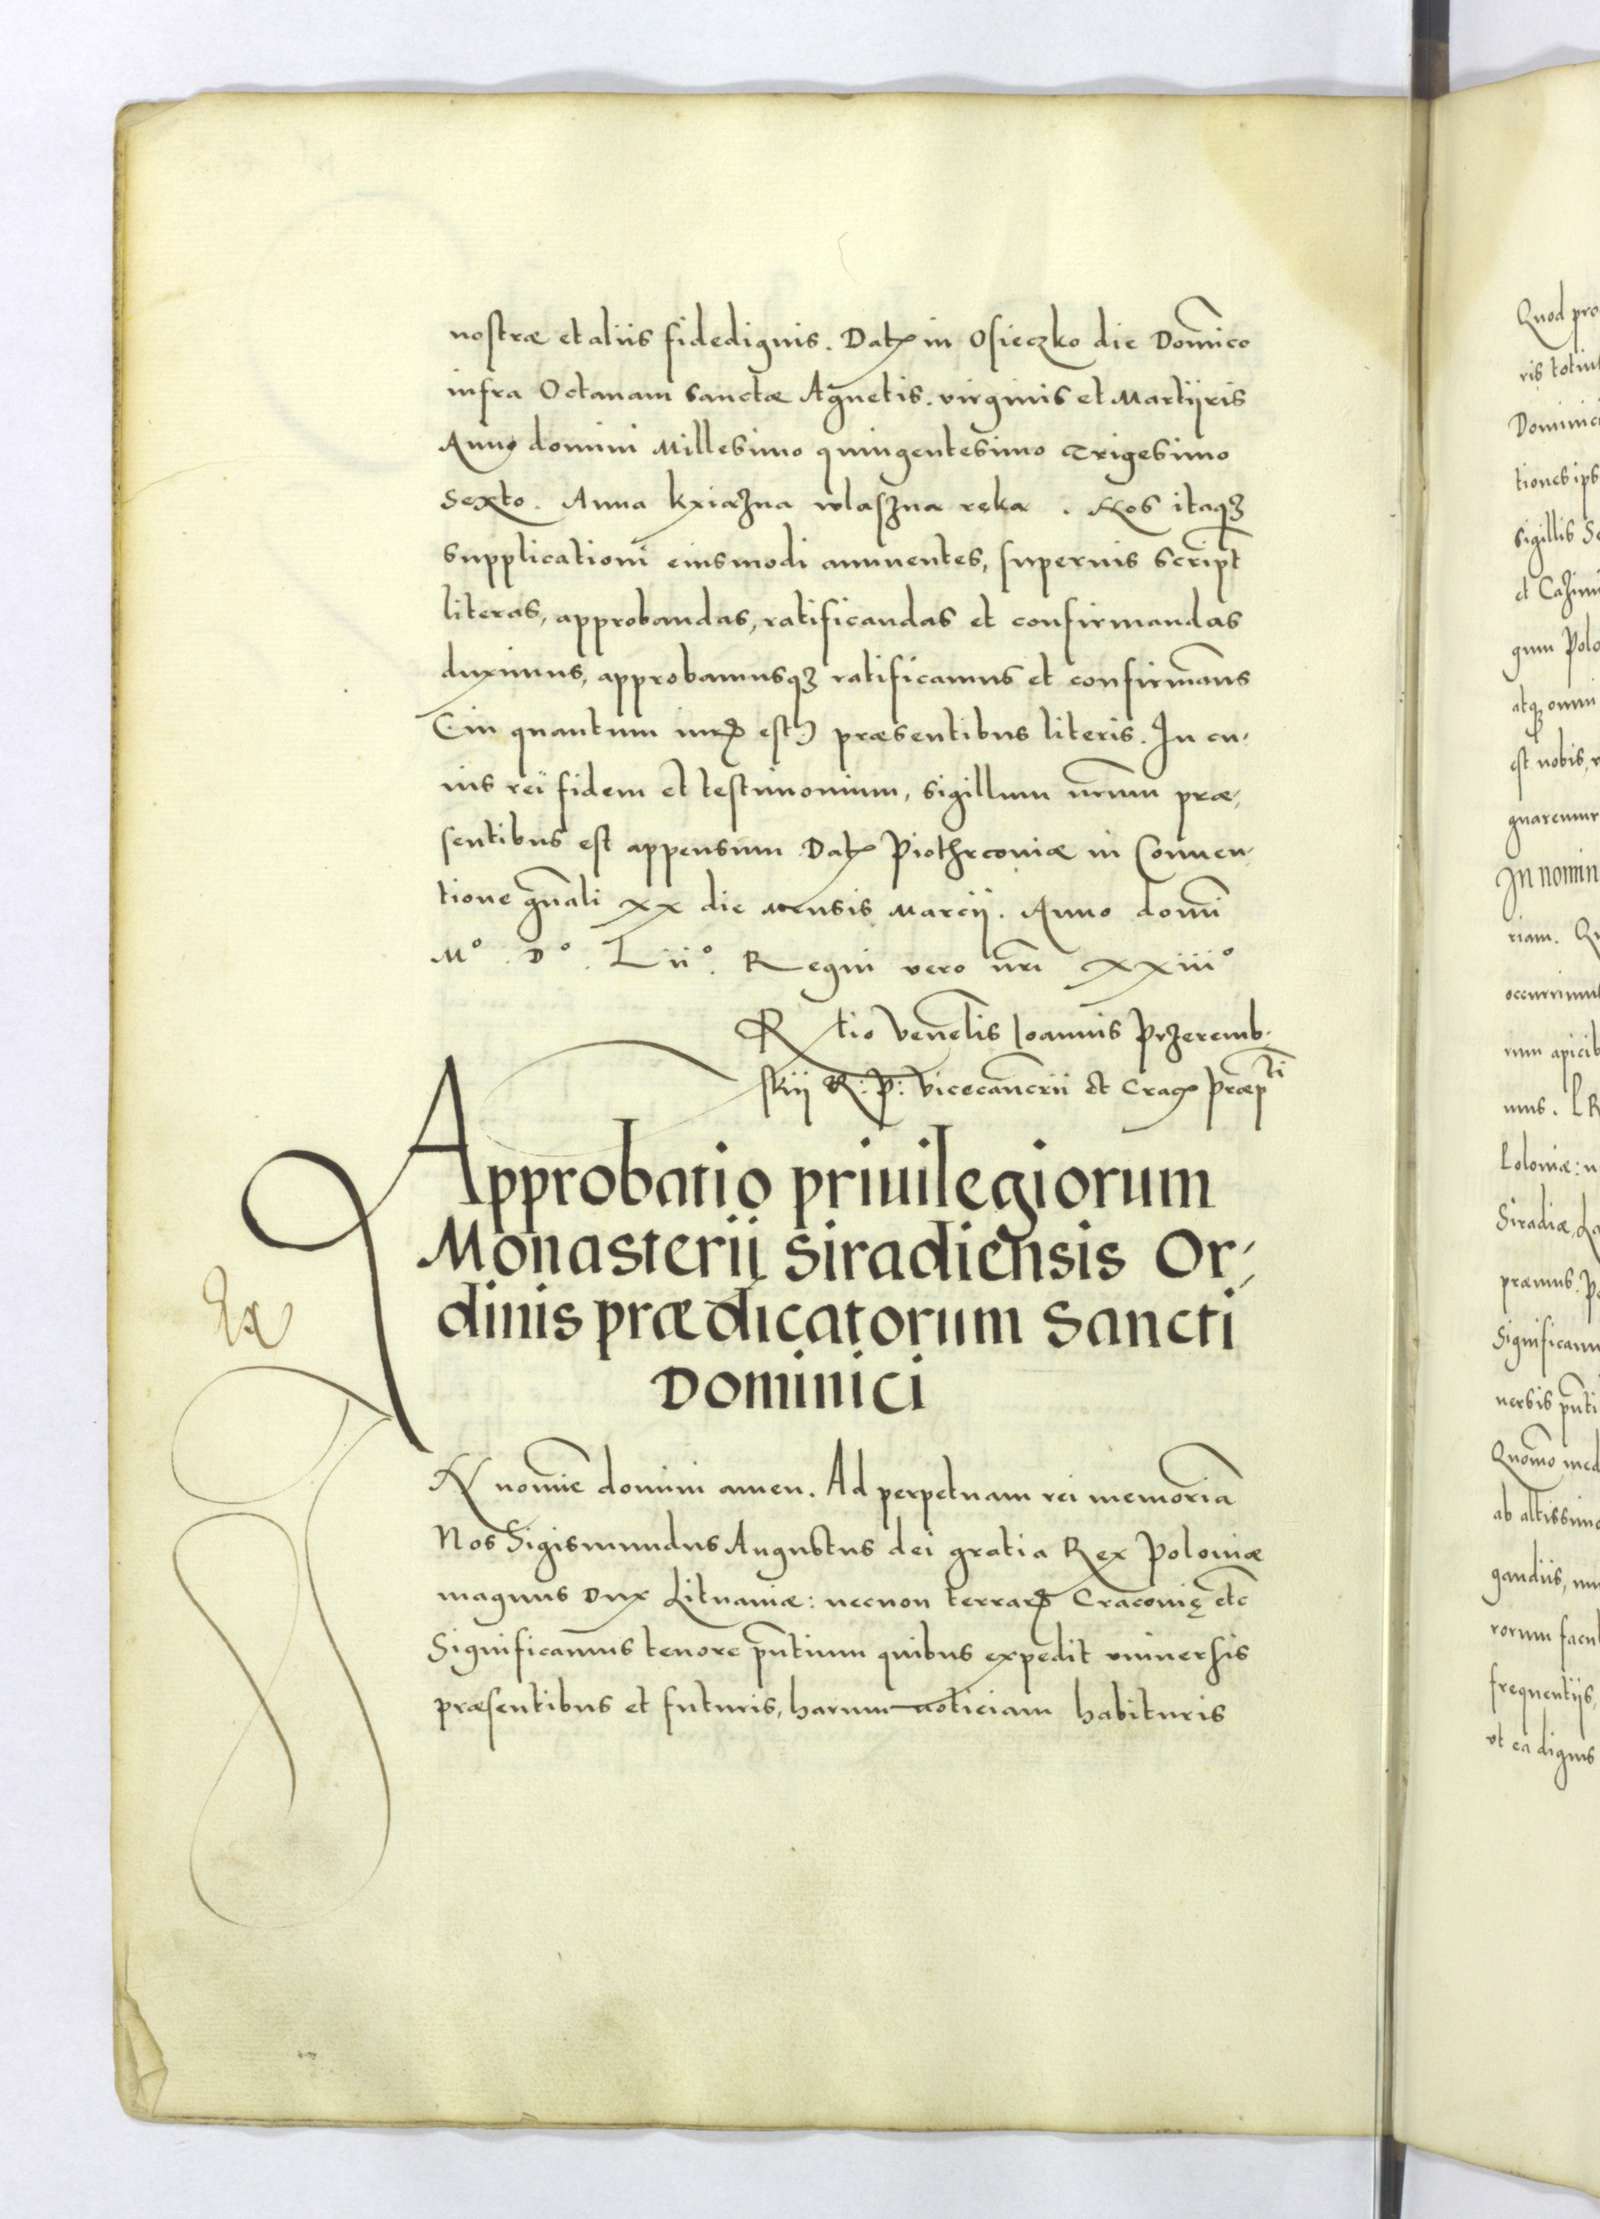 nostræ et aliis fidedignis. Datꝝ in Osieczko die Domīco
infra Octauam sanctæ Agnetis. virginis et Martÿris
Anno domini Millesimo quingentesimo Trigesimo
Sexto. Anna kxiaʒna wlasʒna ręka. Nos itaqꝫ
supplicationi eiusmodi annuentes, superius script̄
literas, approbandas, ratificandas et confirmandas
duximus, approbamusqꝫ ratificamus et confirmam̄s
(in quantum iurꝭ est) præsentibus literis. In cu-
ius rei fidem et testimonium, sigillum nr̄um præ-
sentibus est appensum Datꝝ Piothrcouiæ in Conuen-
tione gn̄ali xx die mensis Marcÿ. Anno domī
Mº. Dº. Liiº. Regni vero nr̄i xxiiiº
Rtio Venel̄is Ioannis Prʒeremb-
skÿ R: P: Vicecanc̄rii et Cracꝭ præpti
Approbatio priuilegiorum
Monasterÿ Siradiensis Or-
dinis prædicatorum Sancti
Dominici
Ex
IN nomīe domini amen. Ad perpetuam rei memoriā
Nos Sigismundus Augustus dei gratia Rex Poloniæ
magnus Dux Lituaniæ: necnon terrarꝭ Cracouię etc̄
Significam̄us tenore pn̄tium quibus expedit vniuersis
præsentibus et futuris, harum noticiam habituris
Quod pro
Dominic
tiones ips
sigillis S
et Caʒimi
gum Polo
atqꝫ omni
est nobis,
In nomin
riam.
rum apicib
Poloniæ:
Siradiæ,
Significam
uersis pn̄ti
Quom̄o med
ab altissimo
gandiis,
rorum facul
frequentÿs,
vt ea dignis